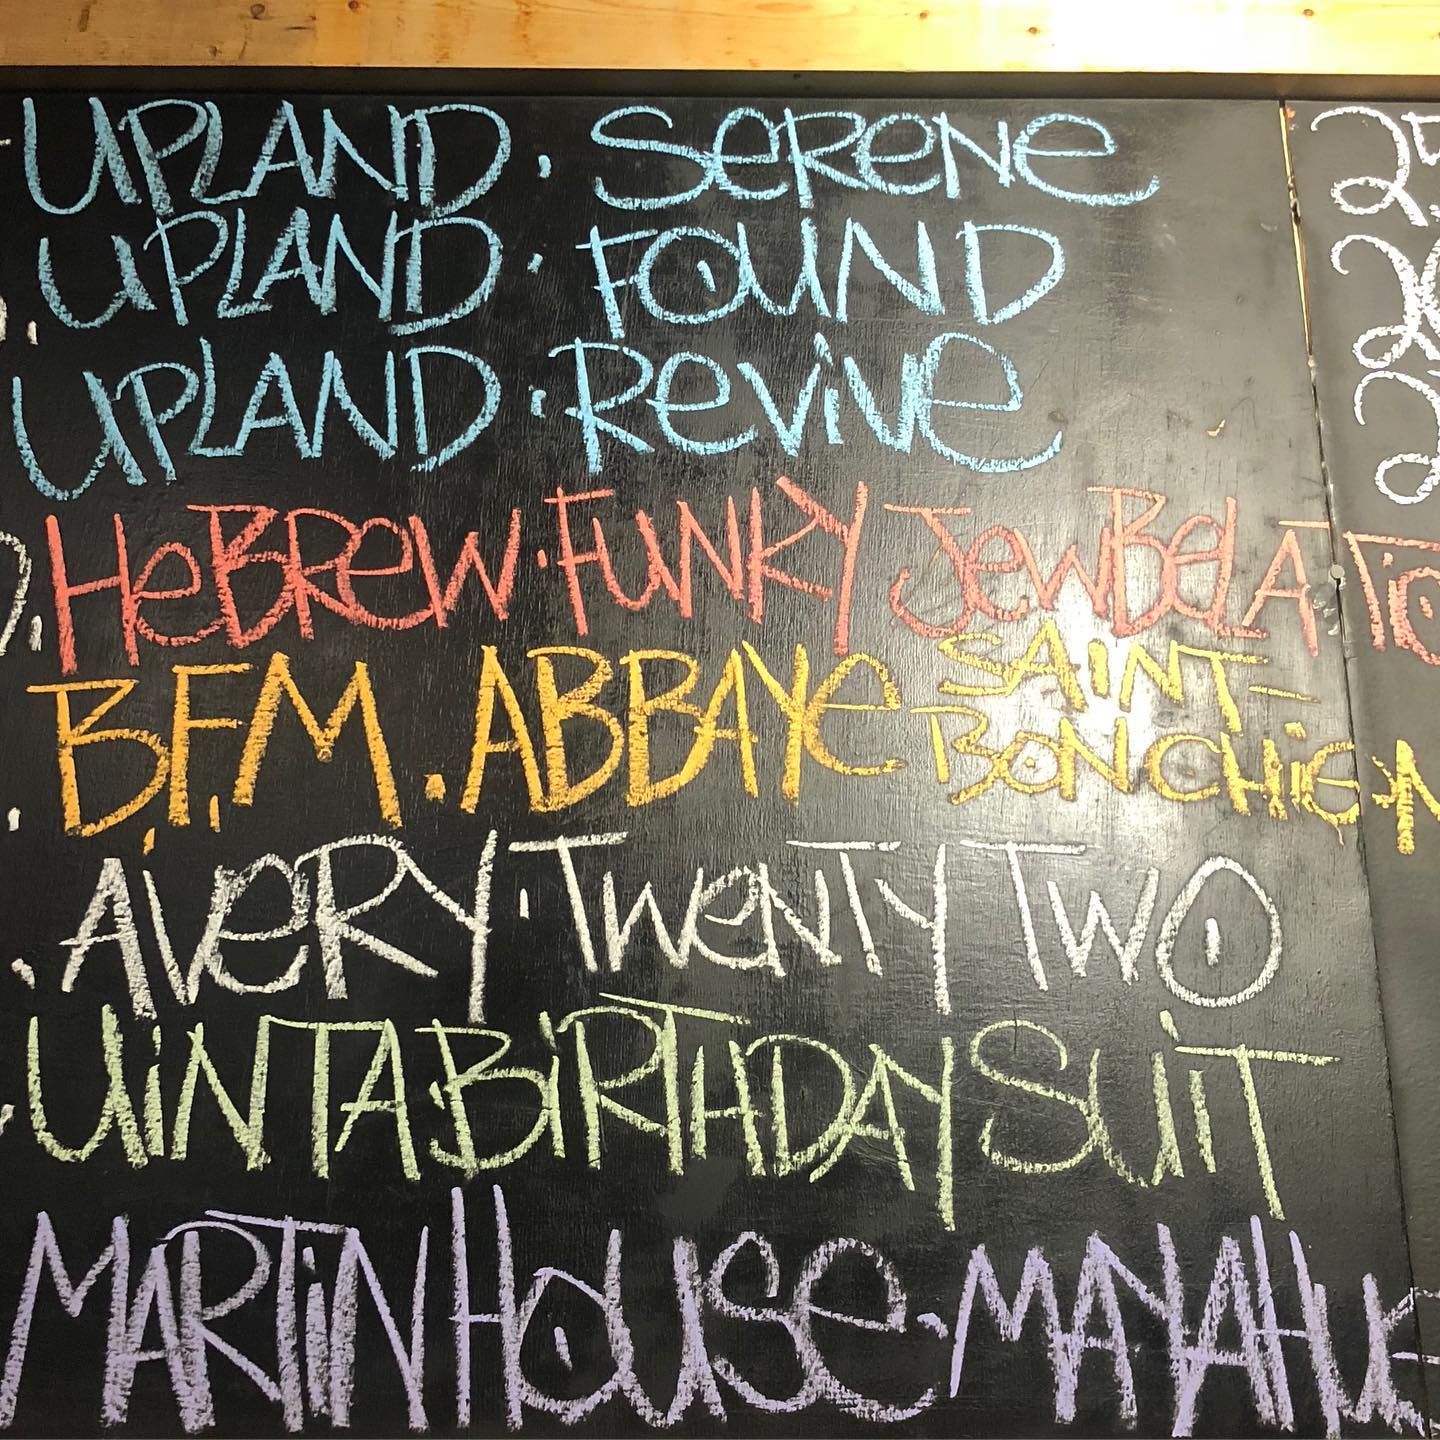 UPLAND · SERENE
UPLAND · FOUND
UPLAND · REVIVE
HEBREW · FUNKY JEWBELATIO
B.F.M. ABBAYE SAINT-
BON CHIEN
AVERY · TWENTY TWO
UINTA · BIRTHDAY SUIT
MARTIN HOUSE · MAYAHUE